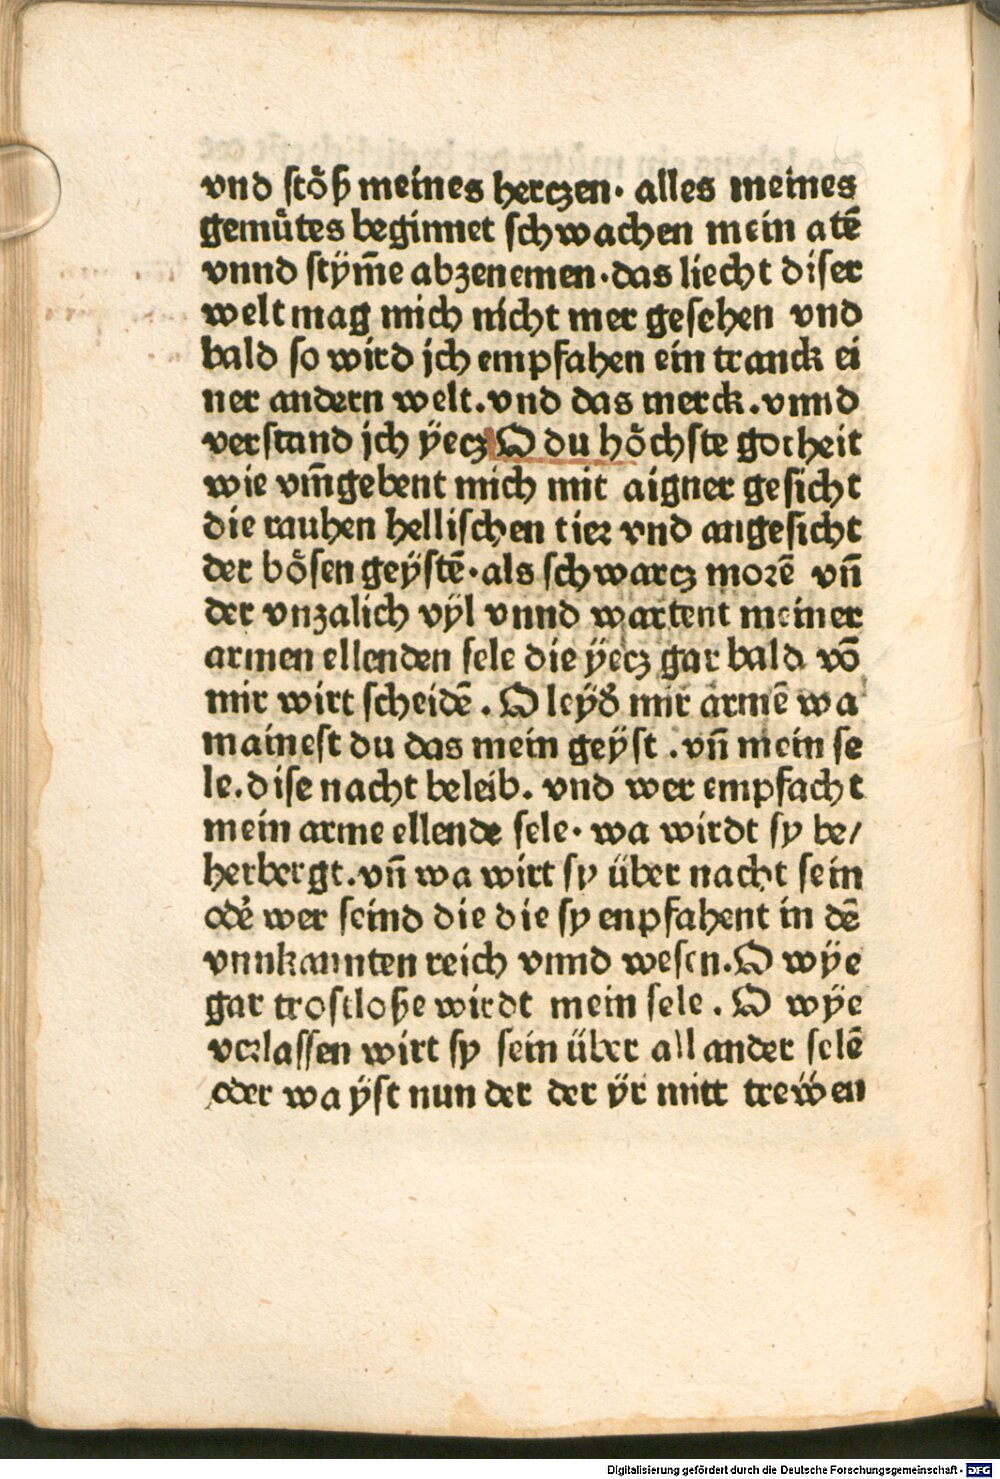 vnd stöß meines herczen· alles meines
gemuͤtes beginnet schwachen mein atē
vnnd stym̄e abzenemen·das liecht diser
welt mag mich nicht mer gesehen vnd
bald so wird jch empfahen ein tranck ei
ner andern welt.vnd das merck.vnnd
verstand jch ÿecz O du höchste gotheit
wie vm̄gebent mich mit aigner gesicht
die rauhen hellischen tier vnd angesicht
der bösen geÿstē·als schwarcz morē vn̄
der vnzalich vÿl vnnd wartent meiner
armen ellenden sele die ÿecz gar bald vō
mir wirt scheidē. O leÿd mir armē wa
mainest du das mein geÿst .vn̄ mein se
le.dise nacht beleib. vnd wer empfacht
mein arme ellende sele· wa wirdt sy be/
herbergt.vn̄ wa wirt sy über nacht sein
oder wer seind die die sy enpfahent in dē
vnnkannten reich vnnd wesen.O wÿe
gar trostloße wirdt mein sele . O wÿe
verlassen wirt sy sein über all ander selē
oder wa ÿst nun der der ÿr mitt treẅen
Digitalisierung gefördert durch die Deutsche Forschungsgemeinschaft - DFG